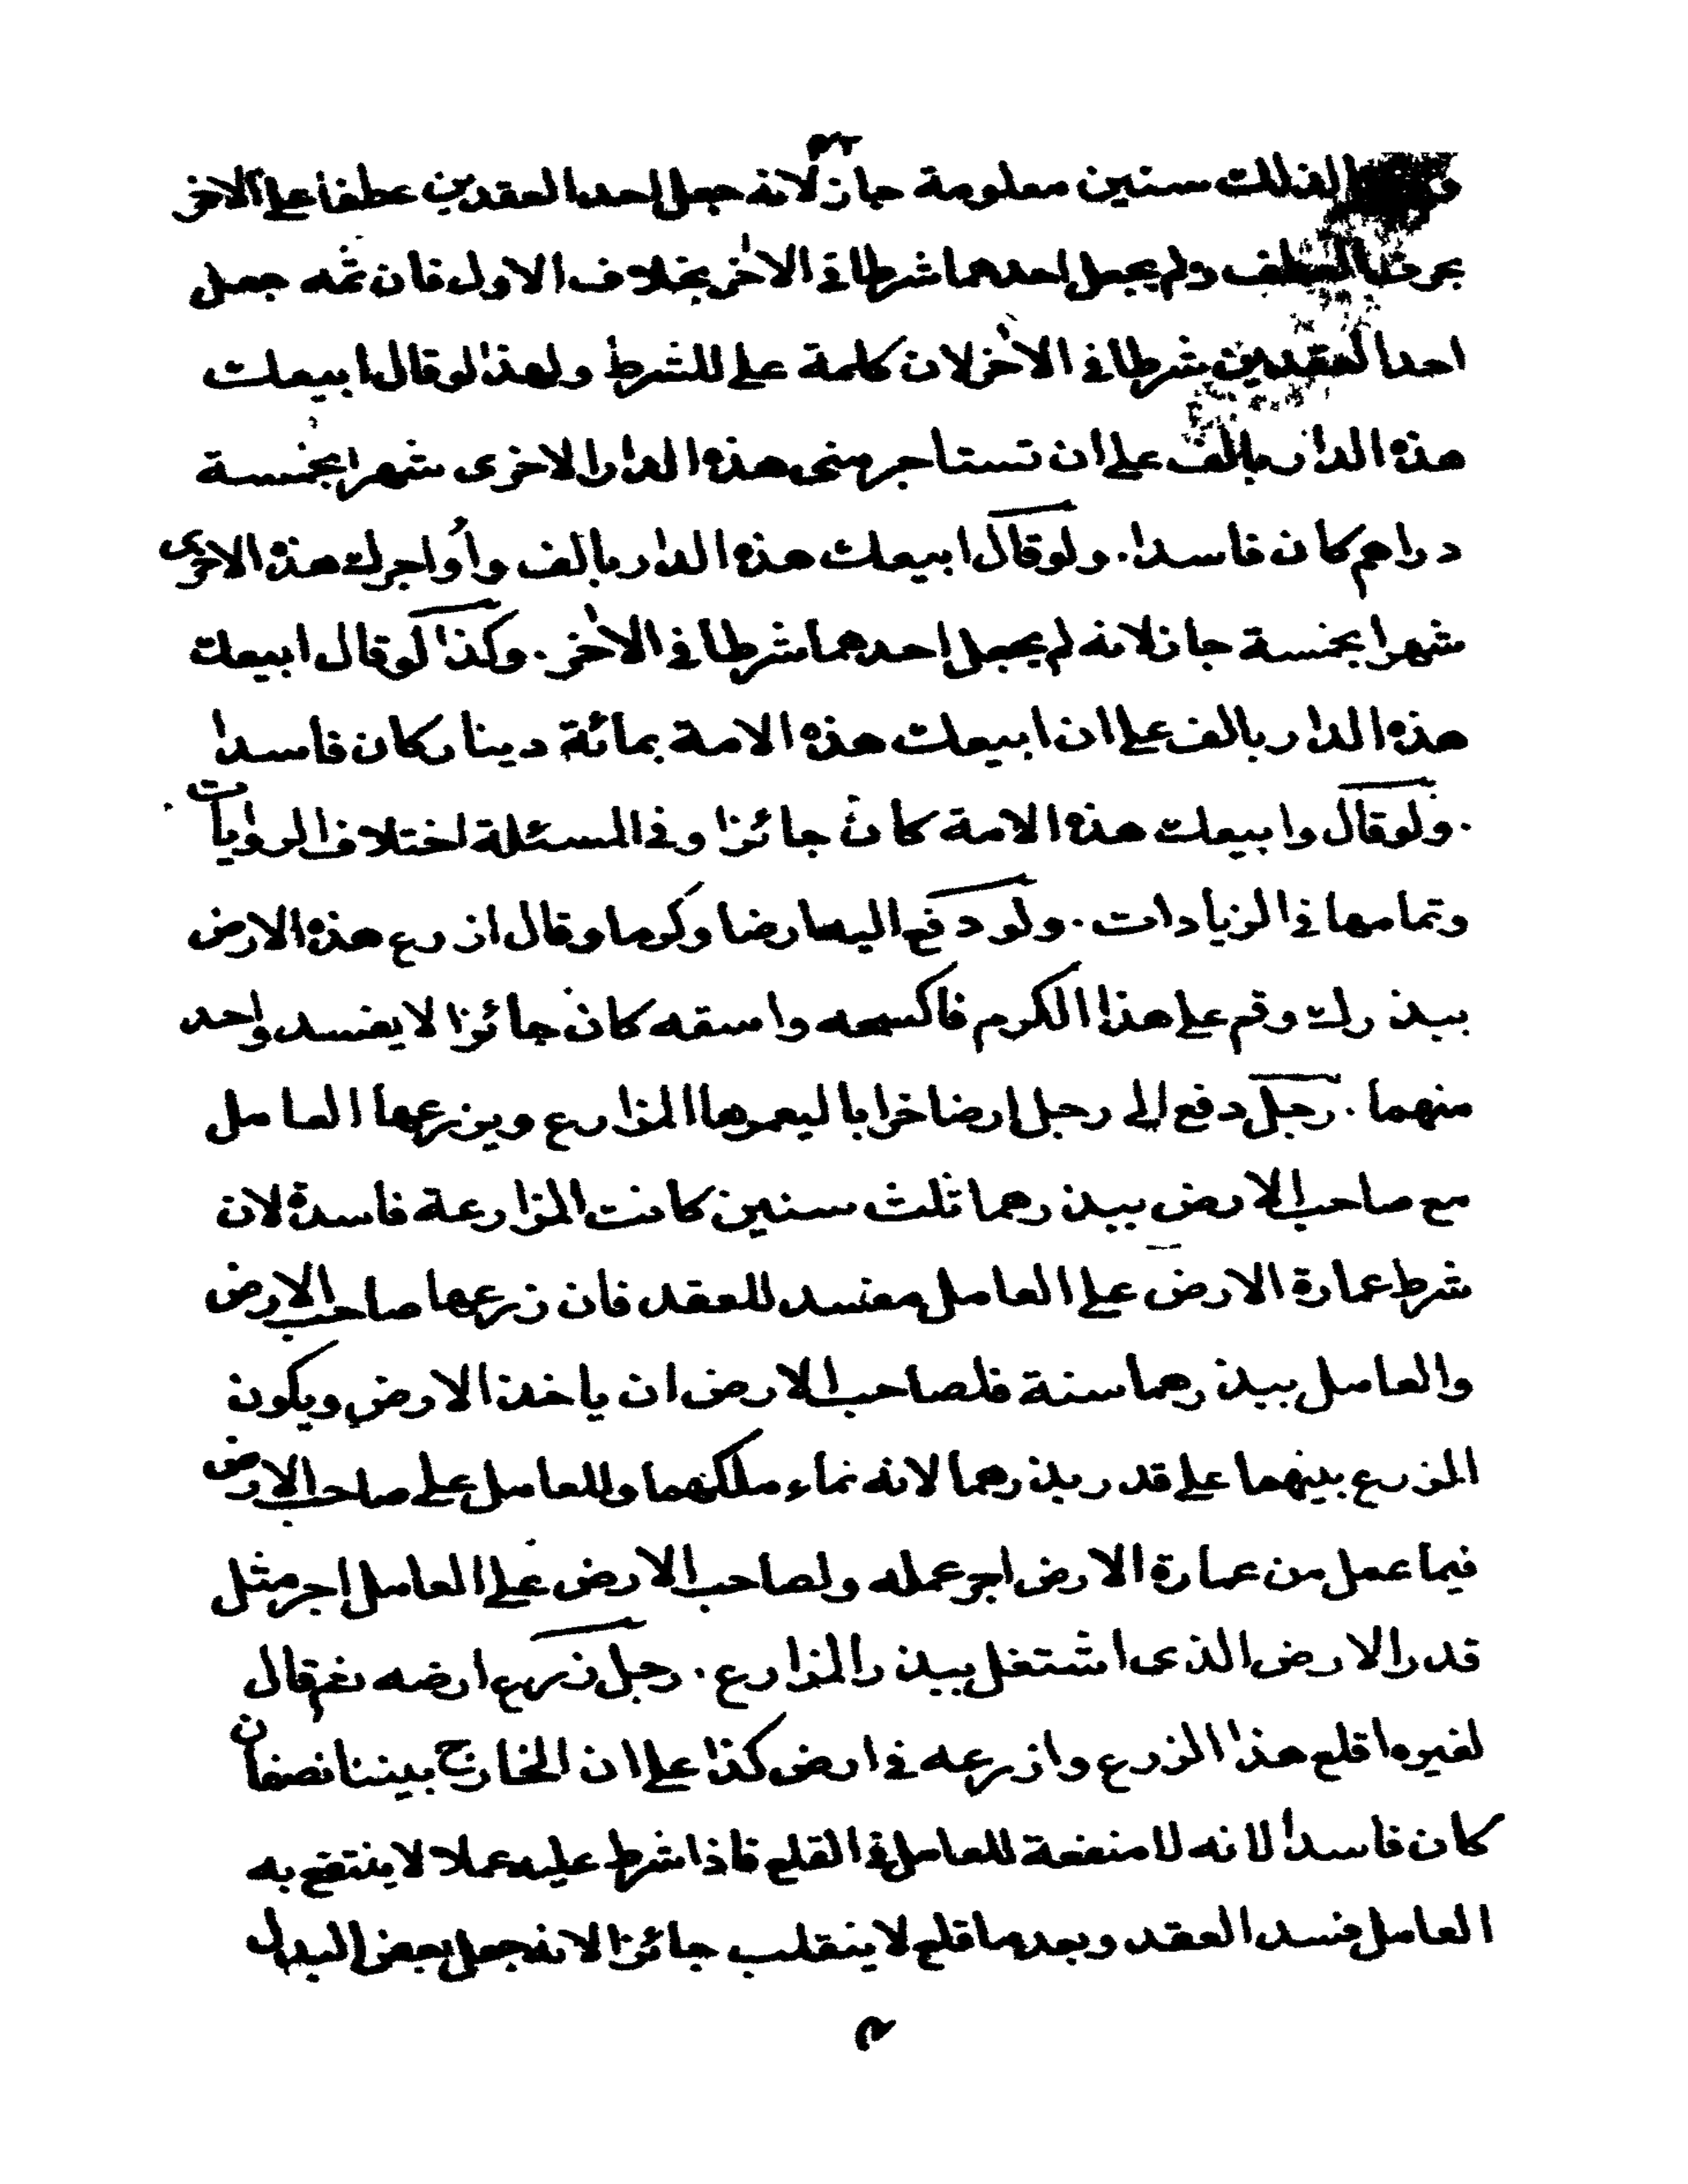 الثلث سنين معلومة جاز لانه جعل احد العقدين عطفا على الاخر
بحرف العطف ولم يجعل احدهما شرطا فى الاخر بخلاف الاول فان ثمه جعل
احد العقدين شرطا فى الاخر لان كلمة على للشرط ولهذا لو قال ابيعك
هذه الدار بالف على ان تستاجر منى هذه الدار الاخرى شهرا بخمسة
دراهم كان فاسدا . ولو قال ابيعك هذه الدار بالف وأواجرك هذه الاخرى
شهرا بخمسة جاز لانه لم يجعل احدهما شرطا فى الاخر . وكذا لو قال ابيعك
هذه الدار بالف على ان ابيعك هذه الامة بمائة دينار كان فاسدا
. ولو قال وابيعك هذه الامة كان جائزا وفى المسئلة اختلاف الروايات
وتمامها فى الزيادات . ولو دفع اليه ارضا وكرما وقال ازرع هذه الارض
ببذرك وقم على هذا الكرم فاكسحه واسقه كان جائزا لا يفسد واحد
منهما . رجل دفع الى رجل ارضا خرابا ليعمرها المزارع ويزرعها العامل
مع صاحب الارض ببذرهما ثلث سنين كانت المزارعة فاسدة لان
شرط عمارة الارض على العامل مفسد للعقد فان زرعها صاحب الارض
والعامل ببذرهما سنة فلصاحب الارض ان ياخذ الارض ويكون
المزرع بينهما على قدر بذرهما لانه نماء ملكهما وللعامل على صاحب الارض
فيما عمل من عمارة الارض اجر عمله ولصاحب الارض على العامل اجر مثل
قدر الارض الذى اشتغل ببذر المزارع . رجل زرع ارضه ثم قال
لغيره اقلع هذا الزرع وازرعه فى ارض كذا على ان الخارج بيننا نصفان
كان فاسدا لانه لا منفعة للعامل فى القلع فاذا شرط عليه عملا لا ينتفع به
العامل فسد العقد وبعد ما قلع لا ينقلب جائزا لانه جعل بعض البدل